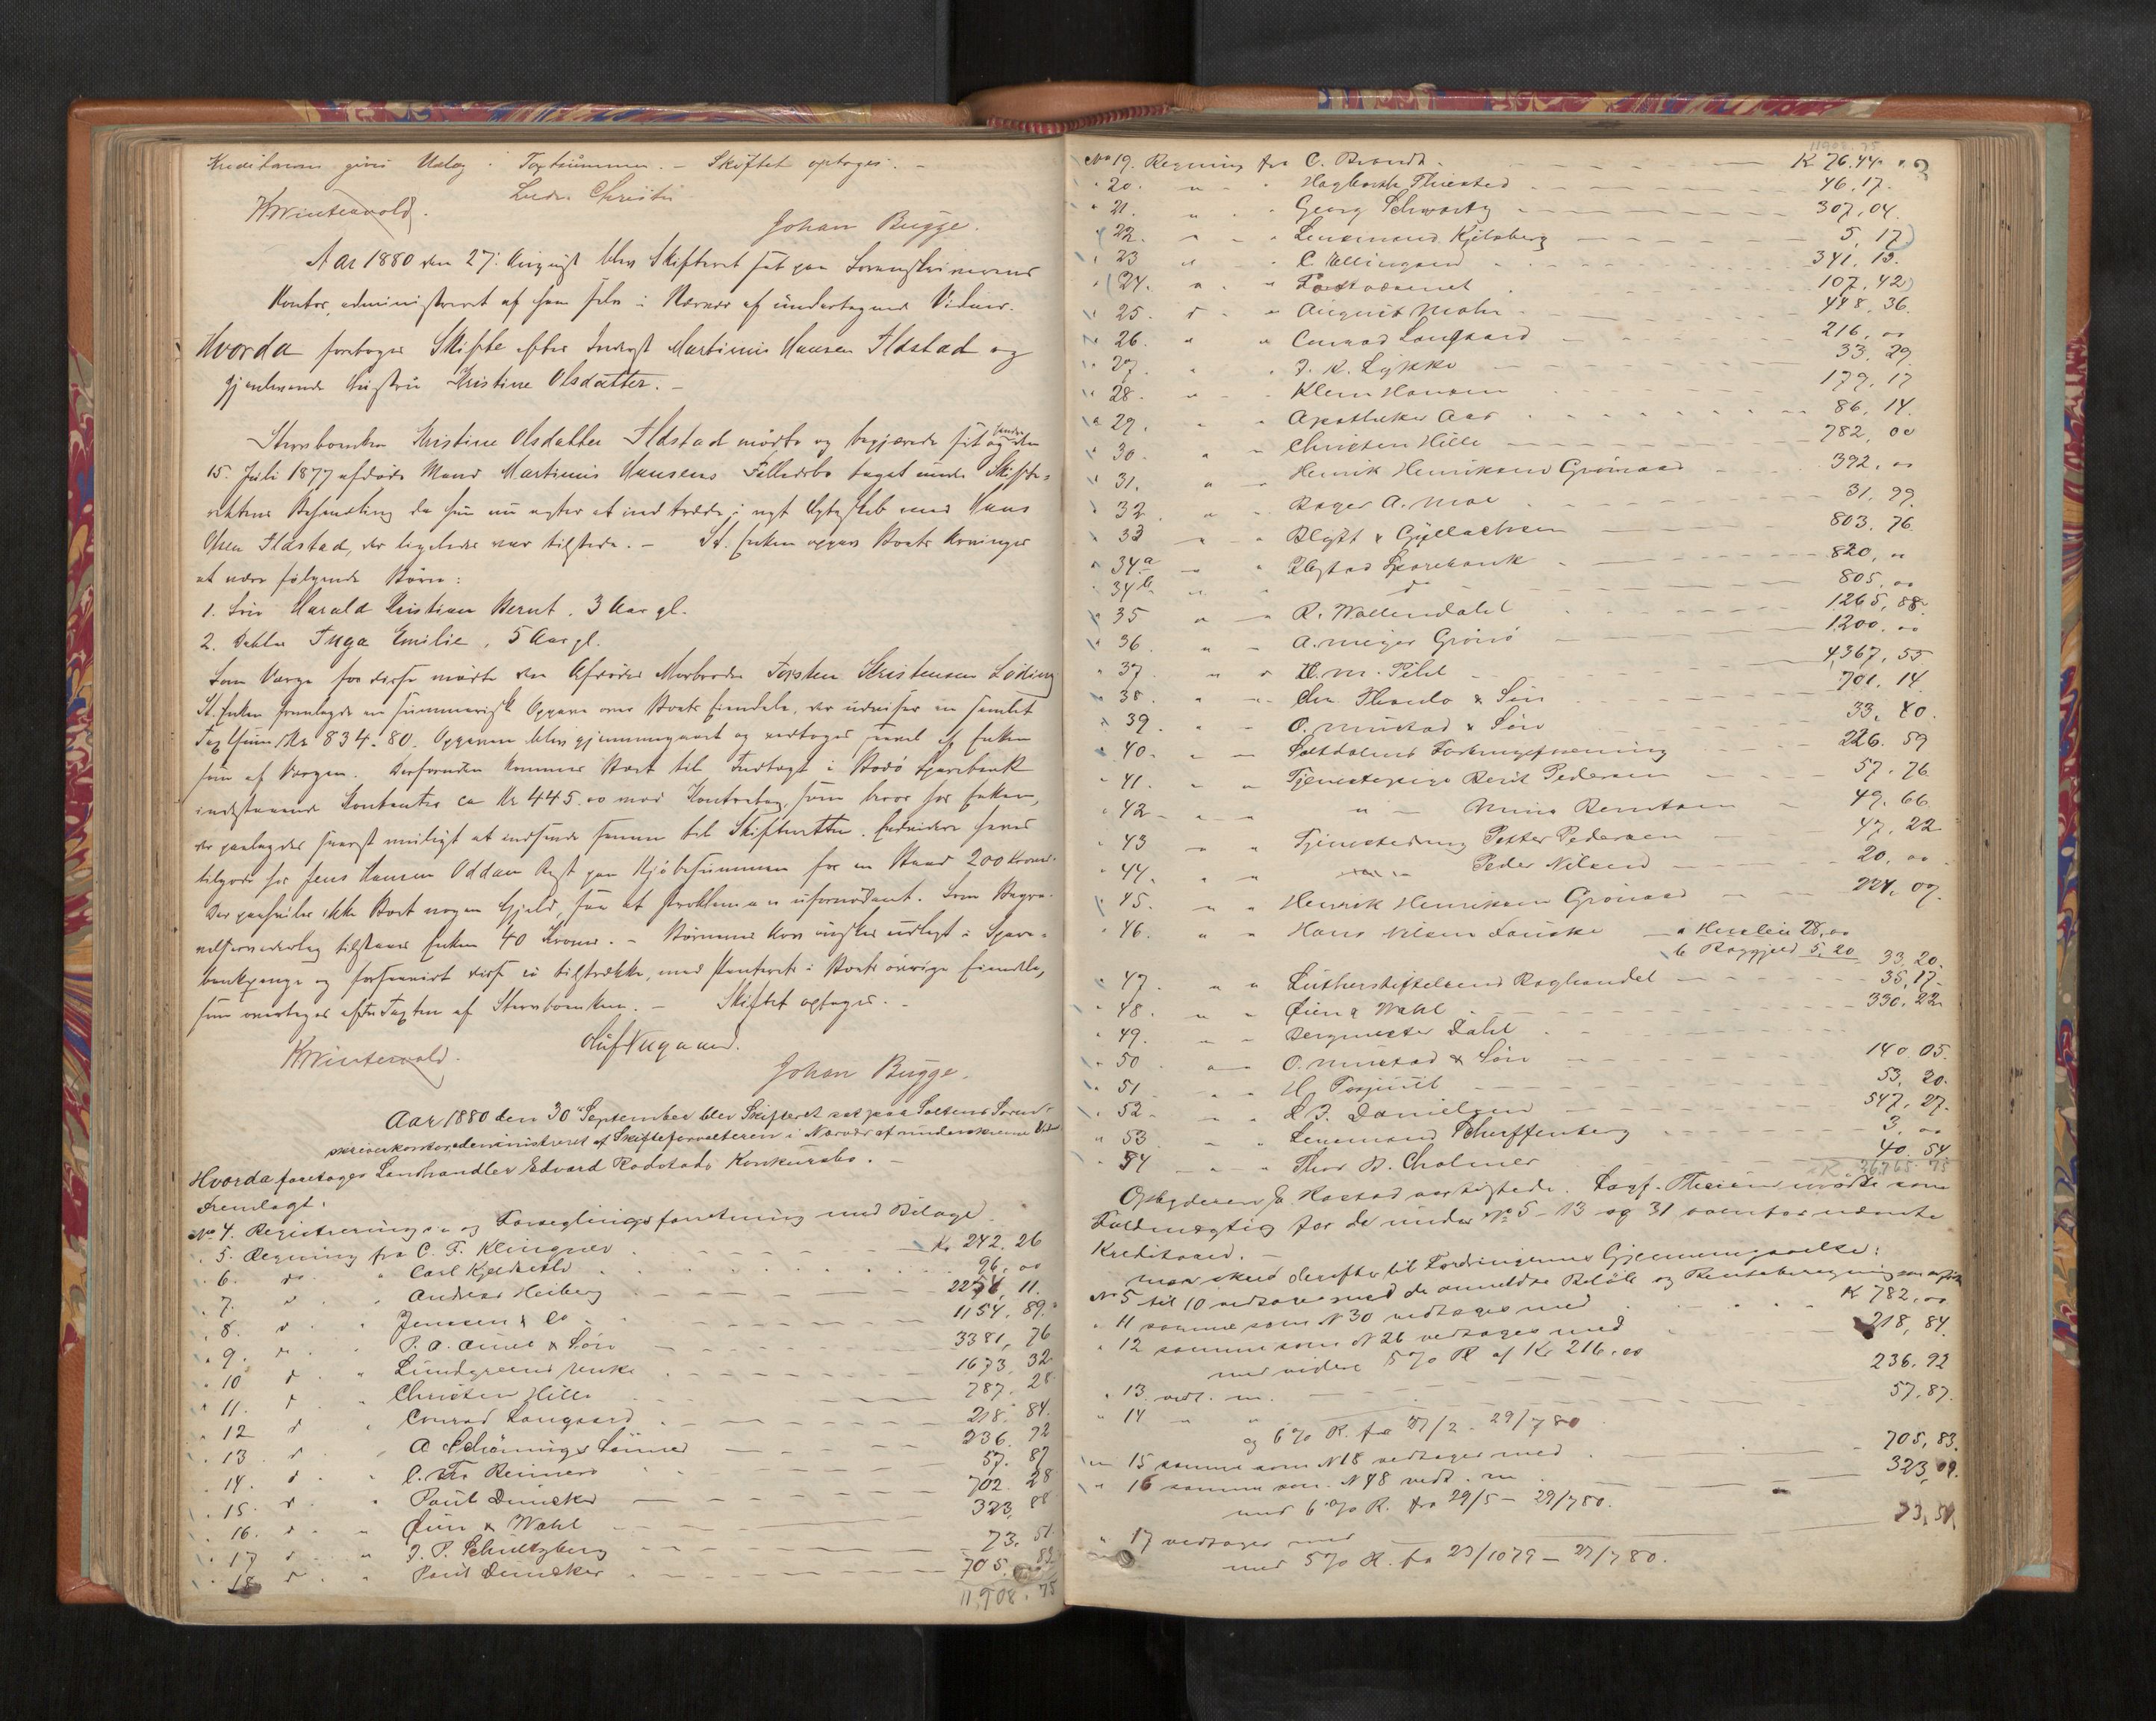 Kreditorerne gives Udlæg i Taxtsummen. – Skiftet optages. –
KWinterwold. Ludv. Christie
Johan Bugge.
Aar 1880 den 27. August blev Skifteret sat paa Sorenskriverens
Kontor, administreret af ham selv i Nærvær af undertegnede Vidner.
Hvorda foretoges Skifte efter Inderst Martinus Hansen Ildstad og
gjenlevende Hustru Kristine Olsdatter. –
Stervboenken Kristine Olsdatter Ildstad mødte og begjærede sit og den
15. Juli 1877 afdøde Mand Martinus Hansens Fællesbo taget under Skifte-
rettens Behandling da hun nu agter at indtræde i nyt Ægteskab med Hans
Olsen Ildstad, der ligeledes var tilstede. – St. Enken opgav Boets Arvinger
at være følgende Børn:
1. Søn Harald Kristian Bernt, 3 Aar gl.
2. Datter Inga Emilie, 5 Aar gl.
Som Værge for disse mødte den Afdødes Morbroder Torsten Kristensen
St. Enken fremlagde en summarisk Opgave over Boets Eiendele, der udviser en samlet
Taxtsum Kr 834.80. Opgaven blev gjennemgaaet og vedtoges saavel af Enken
som af Værgen. Desforuden kommer Boet til Indtægt i Bodø Sparebank
indestaaende Kontanter ca Kr. 445.00 mod Kontrabog, som beror hos Enken,
der paalagdes snarest muligt at indsende samme til Skifteretten. Endvidere haves
tilgode hos Jens Hansen Oddan Rest paa Kjøbesummen for en Baad 200 Kroner.
Der paahviler ikke Boet nogen Gjæld, saa at Proklama er ufornødent. Som Begra-
velsesvederlag tilstaaes Enken 40 Kroner. – Børnenes Arv ønskes udlagt i Spare-
bankpenge og forsaavidt disse ei tilstrække, med Panteret i Boets øvrige Eiendele,
som overtages efter Taxten af Stervboenken. – Skiftet optages. –
KWinterwold. Oluf Nygaard.
Johan Bugge.
Aar 1880 den 30 September blev Skifteret sat paa Saltens Soren-
skriverkontor, administreret af Skifteforvalteren i Nærvær af underskrevne Vidner
Hvorda foretoges Landhandler Edvard Rodstads Konkursbo. –
Fremlagt:
No 4. Registrerings- og Forseglingsforretning med Bilage
" 5. Regning fra C. F. Klingner Kr 242.26
" 6. d " Carl Kjelseth 96,00
" 7. " " Andreas Heiberg 2256, 11.
" 8. d " Jenssen & Co 1154, 89.
" 9. " " P. A. Aune & Søn 3381, 76
" 10 d " Lundgreens Enke 1673, 32
" 11. d " Christen Hille 787. 28
" 12 d " Conrad Langaard 218. 84.
" 13. d " A Schønnings Sønner 236. 92
" 14. d " C. Fr. Reimers 57. 87
" 15. d " Poul Duncker 702. 28
" 16. d " Quin & Wahl 323, 88
" 17 d " J. P. Schultzberg 73, 51
" 18 d " Poul Duncker 705. 83
11,908.75
11908.75
No 19. Regning fra C. Brandt K 76.44.
" 20. " " Hagbarth Thiested 46.17.
" 21. " " Georg Schwartz 307,04.
(22. " " Lensmand Kjelsberg 5, 17)
" 23 " " C. Ellingsen 341, 13.
(24. " " Postvæsenet 107, 42)
" 25. d " August Mohr 448, 36.
" 26. " " Conrad Langaard 216,00
" 27. " " J. K. Lykke 33, 29
" 28. " " Klem Hansen 179, 17
" 29. " " Apotheker Aas 86, 14.
" 30. " " Christen Hille 782, 00
" 31. " " Henrik Henriksen Grønaas 392,00
" 32 " " Roger A. Moe 31, 99.
" 33 " " Blytt & Gyllachsen 803. 76.
" 34a " " Ulstad Sparebank 820,00
34b " " d 805,00
" 35 " " R. Wollendahl 1265, 88.
" 36 " " A. Meyer Grønø 1200.00
" 37 " " H. M. Pihl 4,367, 55
" 38. " " Chr. Thaulo & Søn 701. 14
" 39. " " O. Mustad & Søn 33, 40.
" 40. " " Saltdalens Forbrugsforening 226. 59
" 41. " " Tjenestepige Berit Pedersen 57. 76
" 42 " " " Mina Berntsen 49. 66
" 43 " " Tjenestedreng Petter Pedersen 47. 22
" 44. " " Peder Nilsen 20,00
" 45. " " Henrik Henriksen Grønaas 224, 09.
" 46. " " Hans Nilsen Fauske a Husleie 28,00
b Baggjæld 5,20 33. 20.
" 47. " " Lutherstiftelsens Boghandel 35,17.
" 48. " " Quin & Wahl 330, 22
" 49. " " Bergmester Dahl
" 50 " " O. Mustad & Søn 140. 05.
" 51 " " H. Torjusit 53, 20.
" 52. " " D. J. Danielsen 547, 27.
" 53 " " Lensmand Scheffenberg 3,00
" 54 " " Thor B. Cholmer 40. 54.
R. 26,765. 75
Opbyderen E. Rostad var tilstede. Sagf. Thesen mødte som
Fuldmægtig for de under No 5–13 og 31 ovenfor nævnte
Kreditorer. –
Man skred derefter til Fordringernes Gjennemgaaelse:
No 5 til 10 vedtages med de anmeldte Beløb og Renteberegning
" 11 samme som N 30 vedtages med K 782,00
" 12 samme som N 26 vedtages med 218, 84.
med videre 5 % R af Kr 216.00
" 13. vedt. m. 236.92
" 14 " " 57.87.
og 6 % R. fra 27/2 – 29/7 80
" 15 samme som N 18 vedtages med 705, 83.
" 16 samme som N 48 vedt. m 323,09.
med 6 % R. fra 29/5 – 29/7 80.
" 17 vedtages med 73, 51.
med 5 % R. fra 23/10 79 – 29/7 80.